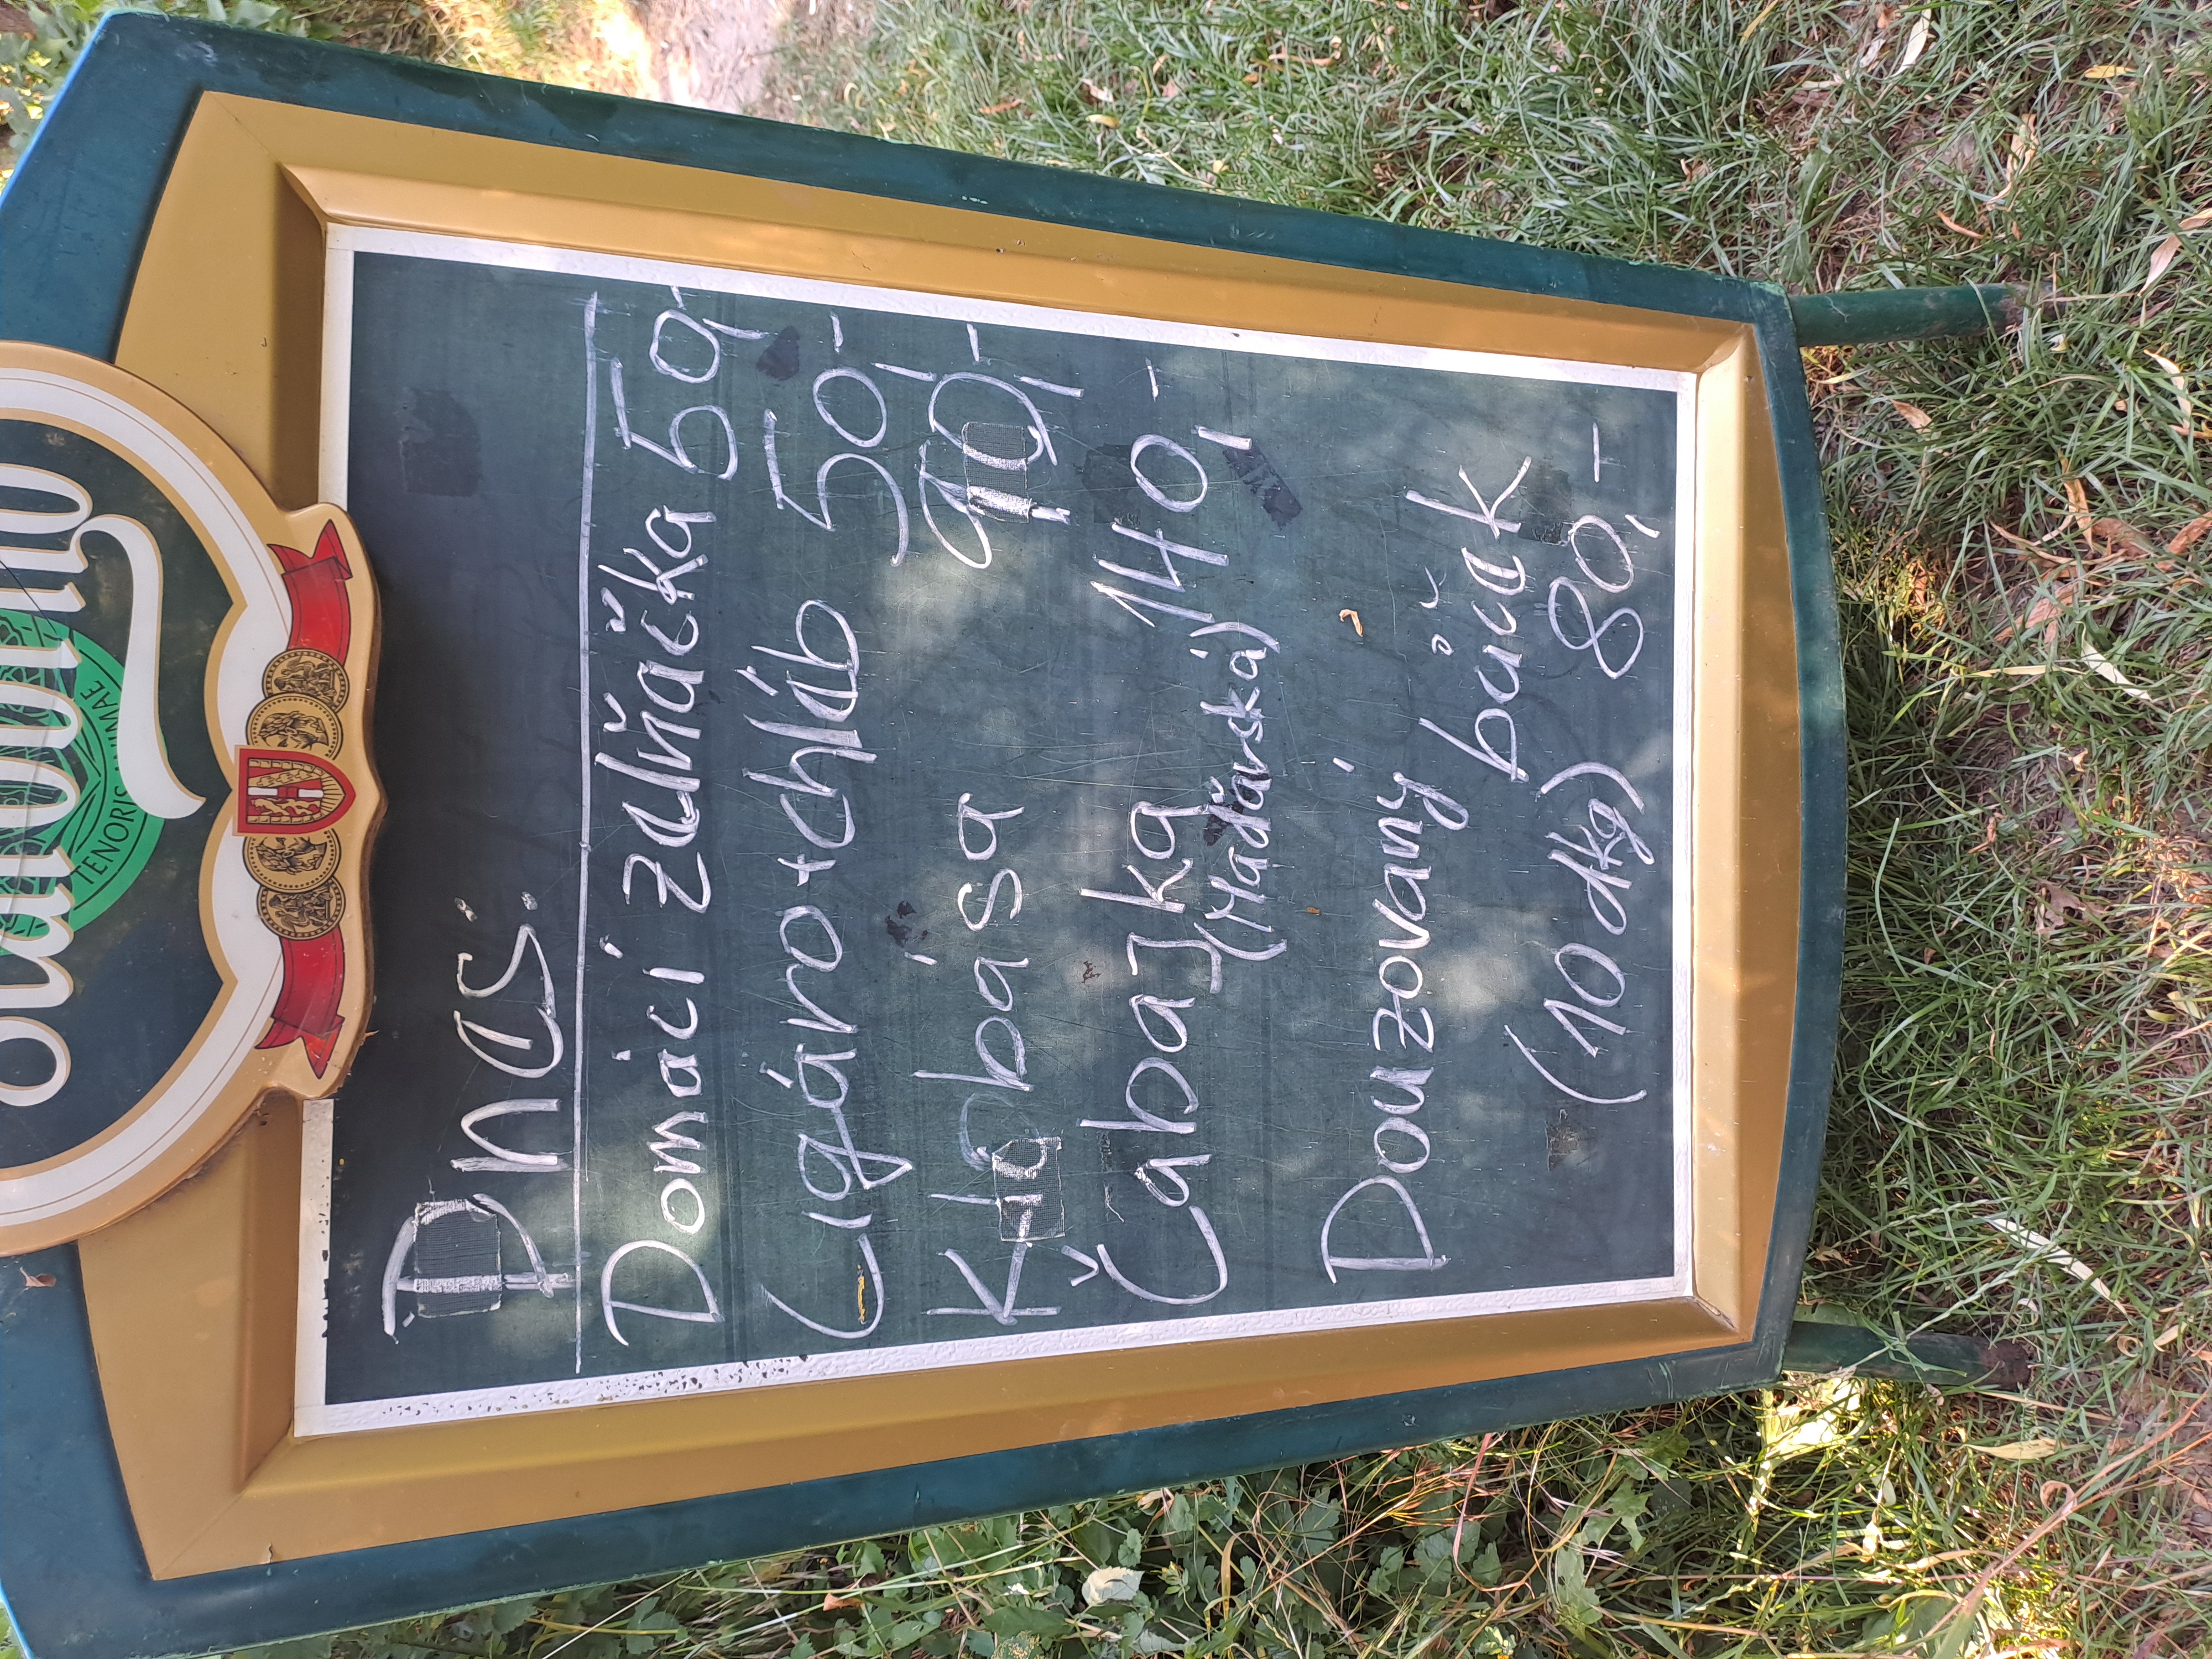 Dnes:
Domácí zelňačka 50,-
Cigáro+chléb 50,-
Klobása 90,-
Čabajka 140,-
(Maďarská)
Douzovaný bůček
(10 dkg) 80,-